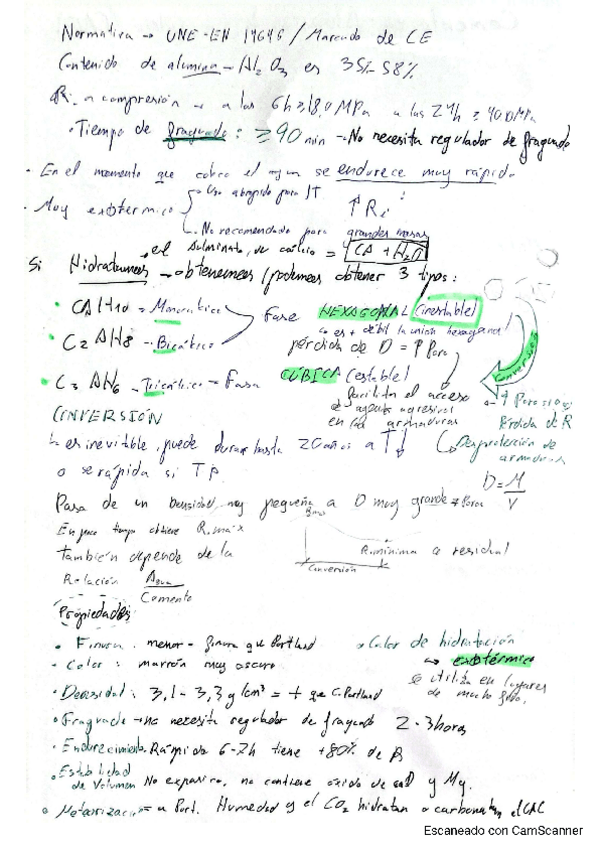 Normativa → UNE-EN 14646 / Marcado de CE
Contenido de alumina → Al2O3 es 35% - 58%
R. a compresión → a las 6h ≥ 18,0 MPa a las 24h ≥ 40,0 MPa
· Tiempo de fraguado : ≥ 90 min → No necesita regulador de fraguado
· En el momento que cobra el agua se endurece muy rápido
Uso apropiado para ↓T
↑Ri
· Muy exotérmico
No recomendado para grandes masas
Si Hidratamos el Aluminato de calcio = CA + H2O
→ obtenemos/podemos obtener 3 tipos :
· CAH10 → Monocálcico
Fase HEXAGONAL (inestable)
· C2AH8 → Bicálcico
↳ es + débil la unión hexagonal
pérdida de D = ↑ Poro
· C3AH6 → Tricálcico → Fase CÚBICA (estable)
Conversión
facilita el acceso
de agentes agresivos
en las armaduras
↑ Porosidad
Pérdida de R
Desprotección de armaduras
CONVERSIÓN
↳ es inevitable, puede durar hasta 20 años a T↓
o se rápida si T↑
D = M/V
Pasa de un Densidad muy pequeña a D muy grande ≠ Poros
En poco tiempo obtiene R. máx
también depende de la
R. mínima o residual
Conversión
Relación Agua / Cemento
Propiedades
· Finura : menor finura que Portland
· Calor de hidratación
↳ exotérmico
· Color : marrón muy oscuro
Se utiliza en lugares
de mucho frío.
· Densidad : 3,1 - 3,3 g/cm3 = + que C. Portland
· Fraguado → no necesita regulador de fraguado 2-3 horas
· Endurecimiento. Rápido 6-7h tiene +80% de R
· Estabilidad de Volumen No expansivo, no contiene óxido de cal y Mg.
· Meteorización = a Port. Humedad y el CO2 hidratan o carbonatan el CAC
Escaneado con CamScanner